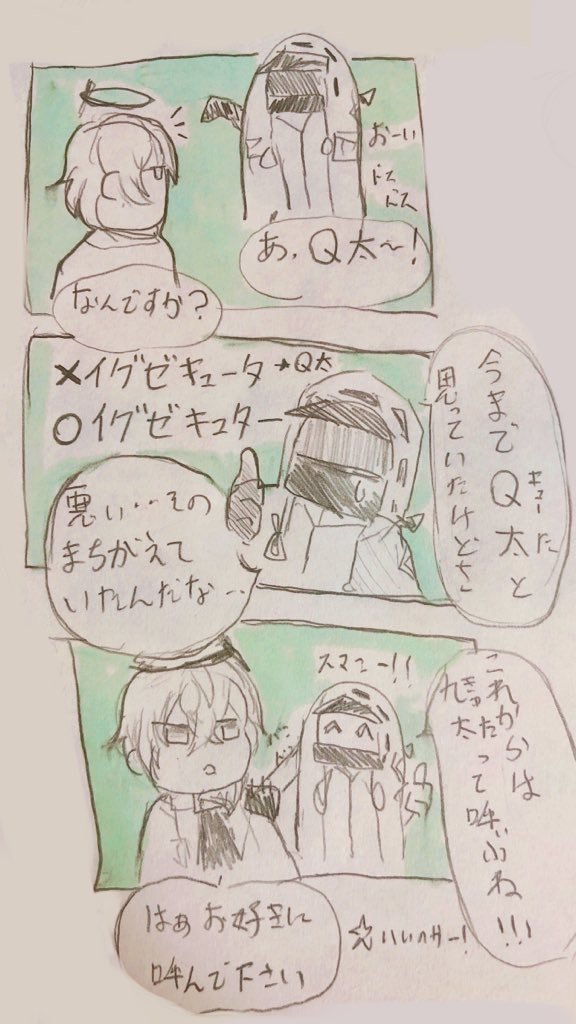 おーい
ドス
ドス
あ、Q太〜!
なんですか?
今までQ太と
キューた
思っていたけどさ
×イグゼキュータ→Q太
○イグゼキュター
悪い‥その
まちがえて
いたんだな‥
スマニー!!
これからは
九太って呼ぶね!!!
きゅた
はぁお好きに
呼んで下さい